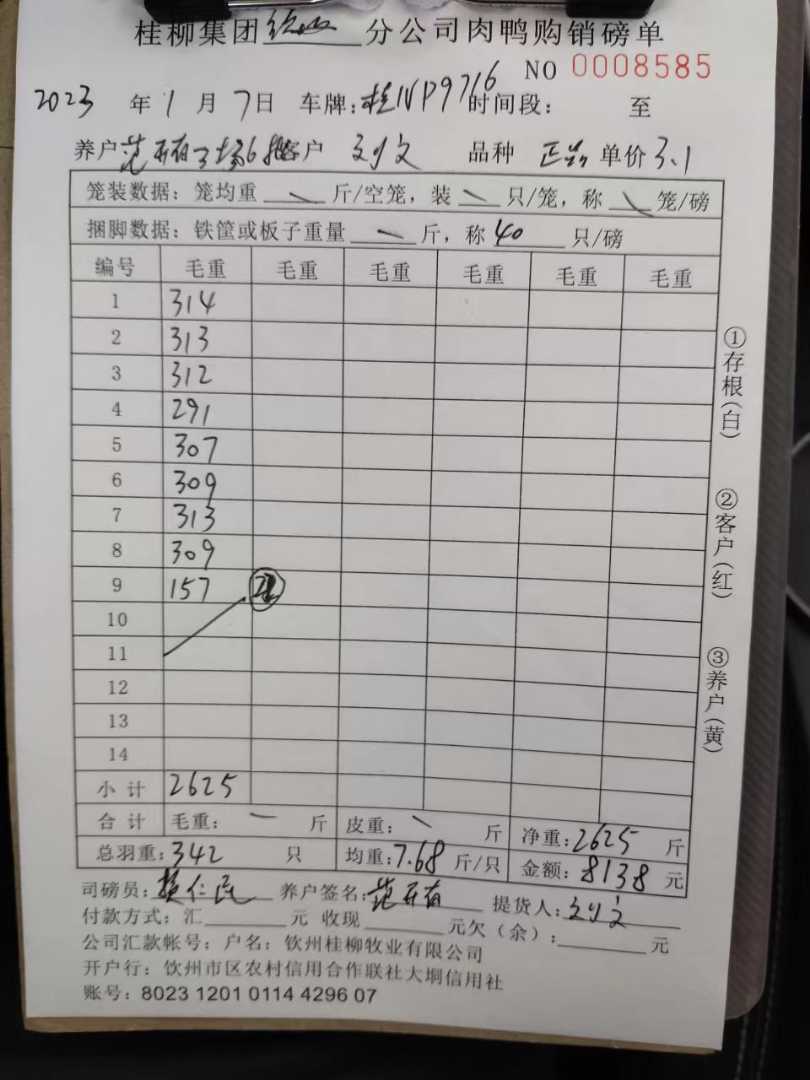 桂柳集团 分公司肉鸭购销磅单
NO 0008585
2023 年 1 月 7 日 车牌: 桂NP9716 时间段: 至
养户 范开有 场6批 客户 刘文 品种 正 单价 3.1
笼装数据: 笼均重 斤/空笼, 装 只/笼, 称 笼/磅
捆脚数据: 铁筐或板子重量 斤, 称 40 只/磅
编号 毛重 毛重 毛重 毛重 毛重 毛重
1 314
2 313
3 312
4 291
5 307
6 309
7 313
8 309
9 157
10
11
12
13
14
小计 2625
合计 毛重: 斤 皮重: 斤 净重: 2625 斤
总羽重: 342 只 均重: 7.68 斤/只 金额: 8138 元
司磅员: 仁民 养户签名: 范开有 提货人: 刘文
付款方式: 汇 元 收现 元欠(余): 元
公司汇款帐号: 户名: 钦州桂柳牧业有限公司
开户行: 钦州市区农村信用合作联社大垌信用社
账号: 8023 1201 0114 4296 07
①存根(白)
②客户(红)
③养户(黄)